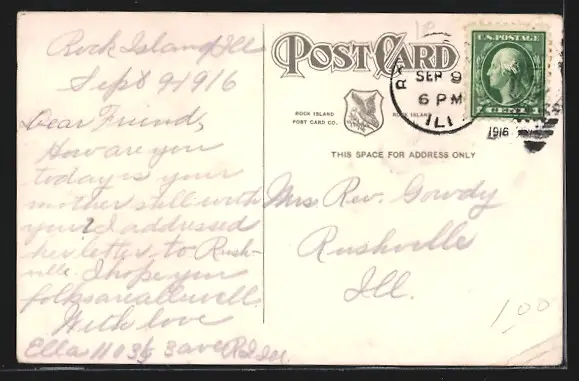 Rock Island Ill
Sept 9 1916
Dear Friend,
How are you
today is your
mother still with
you? I addressed
her letter to Rush-
ville. I hope you
folks are all well.
With love
Ella 1103½ 3 ave R.I. Ill.
POST CARD
ROCK ISLAND
POST CARD CO.
ROCK ISLAND
THIS SPACE FOR ADDRESS ONLY
SEP 9
6 PM
ILL
1916
U.S. POSTAGE
1 CENT 1
Mrs. Rev. Gowdy
Rushville
Ill.
1.00